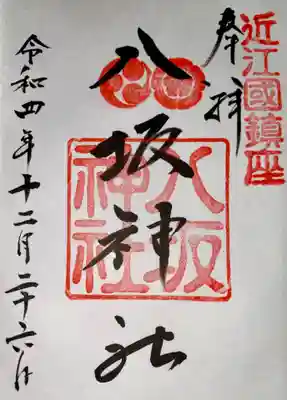 近江國鎮座
奉拝
八坂神社
八坂神社
令和四年十二月二十六日